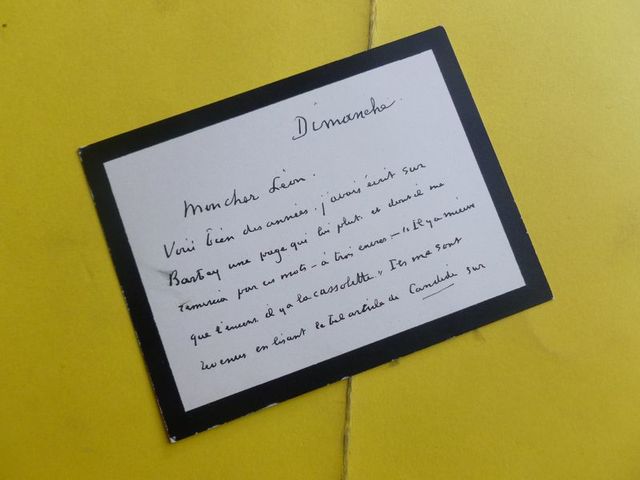 Dimanche.
Mon cher Léon.
Voici bien des années. j'avais écrit sur
Barbey une page qui lui plut. et dont il me
remercia par ces mots – à trois encres – "Il y a mieux
que l'encens il y a la cassolette" Ils me sont
revenus en lisant le bel article de Candide sur